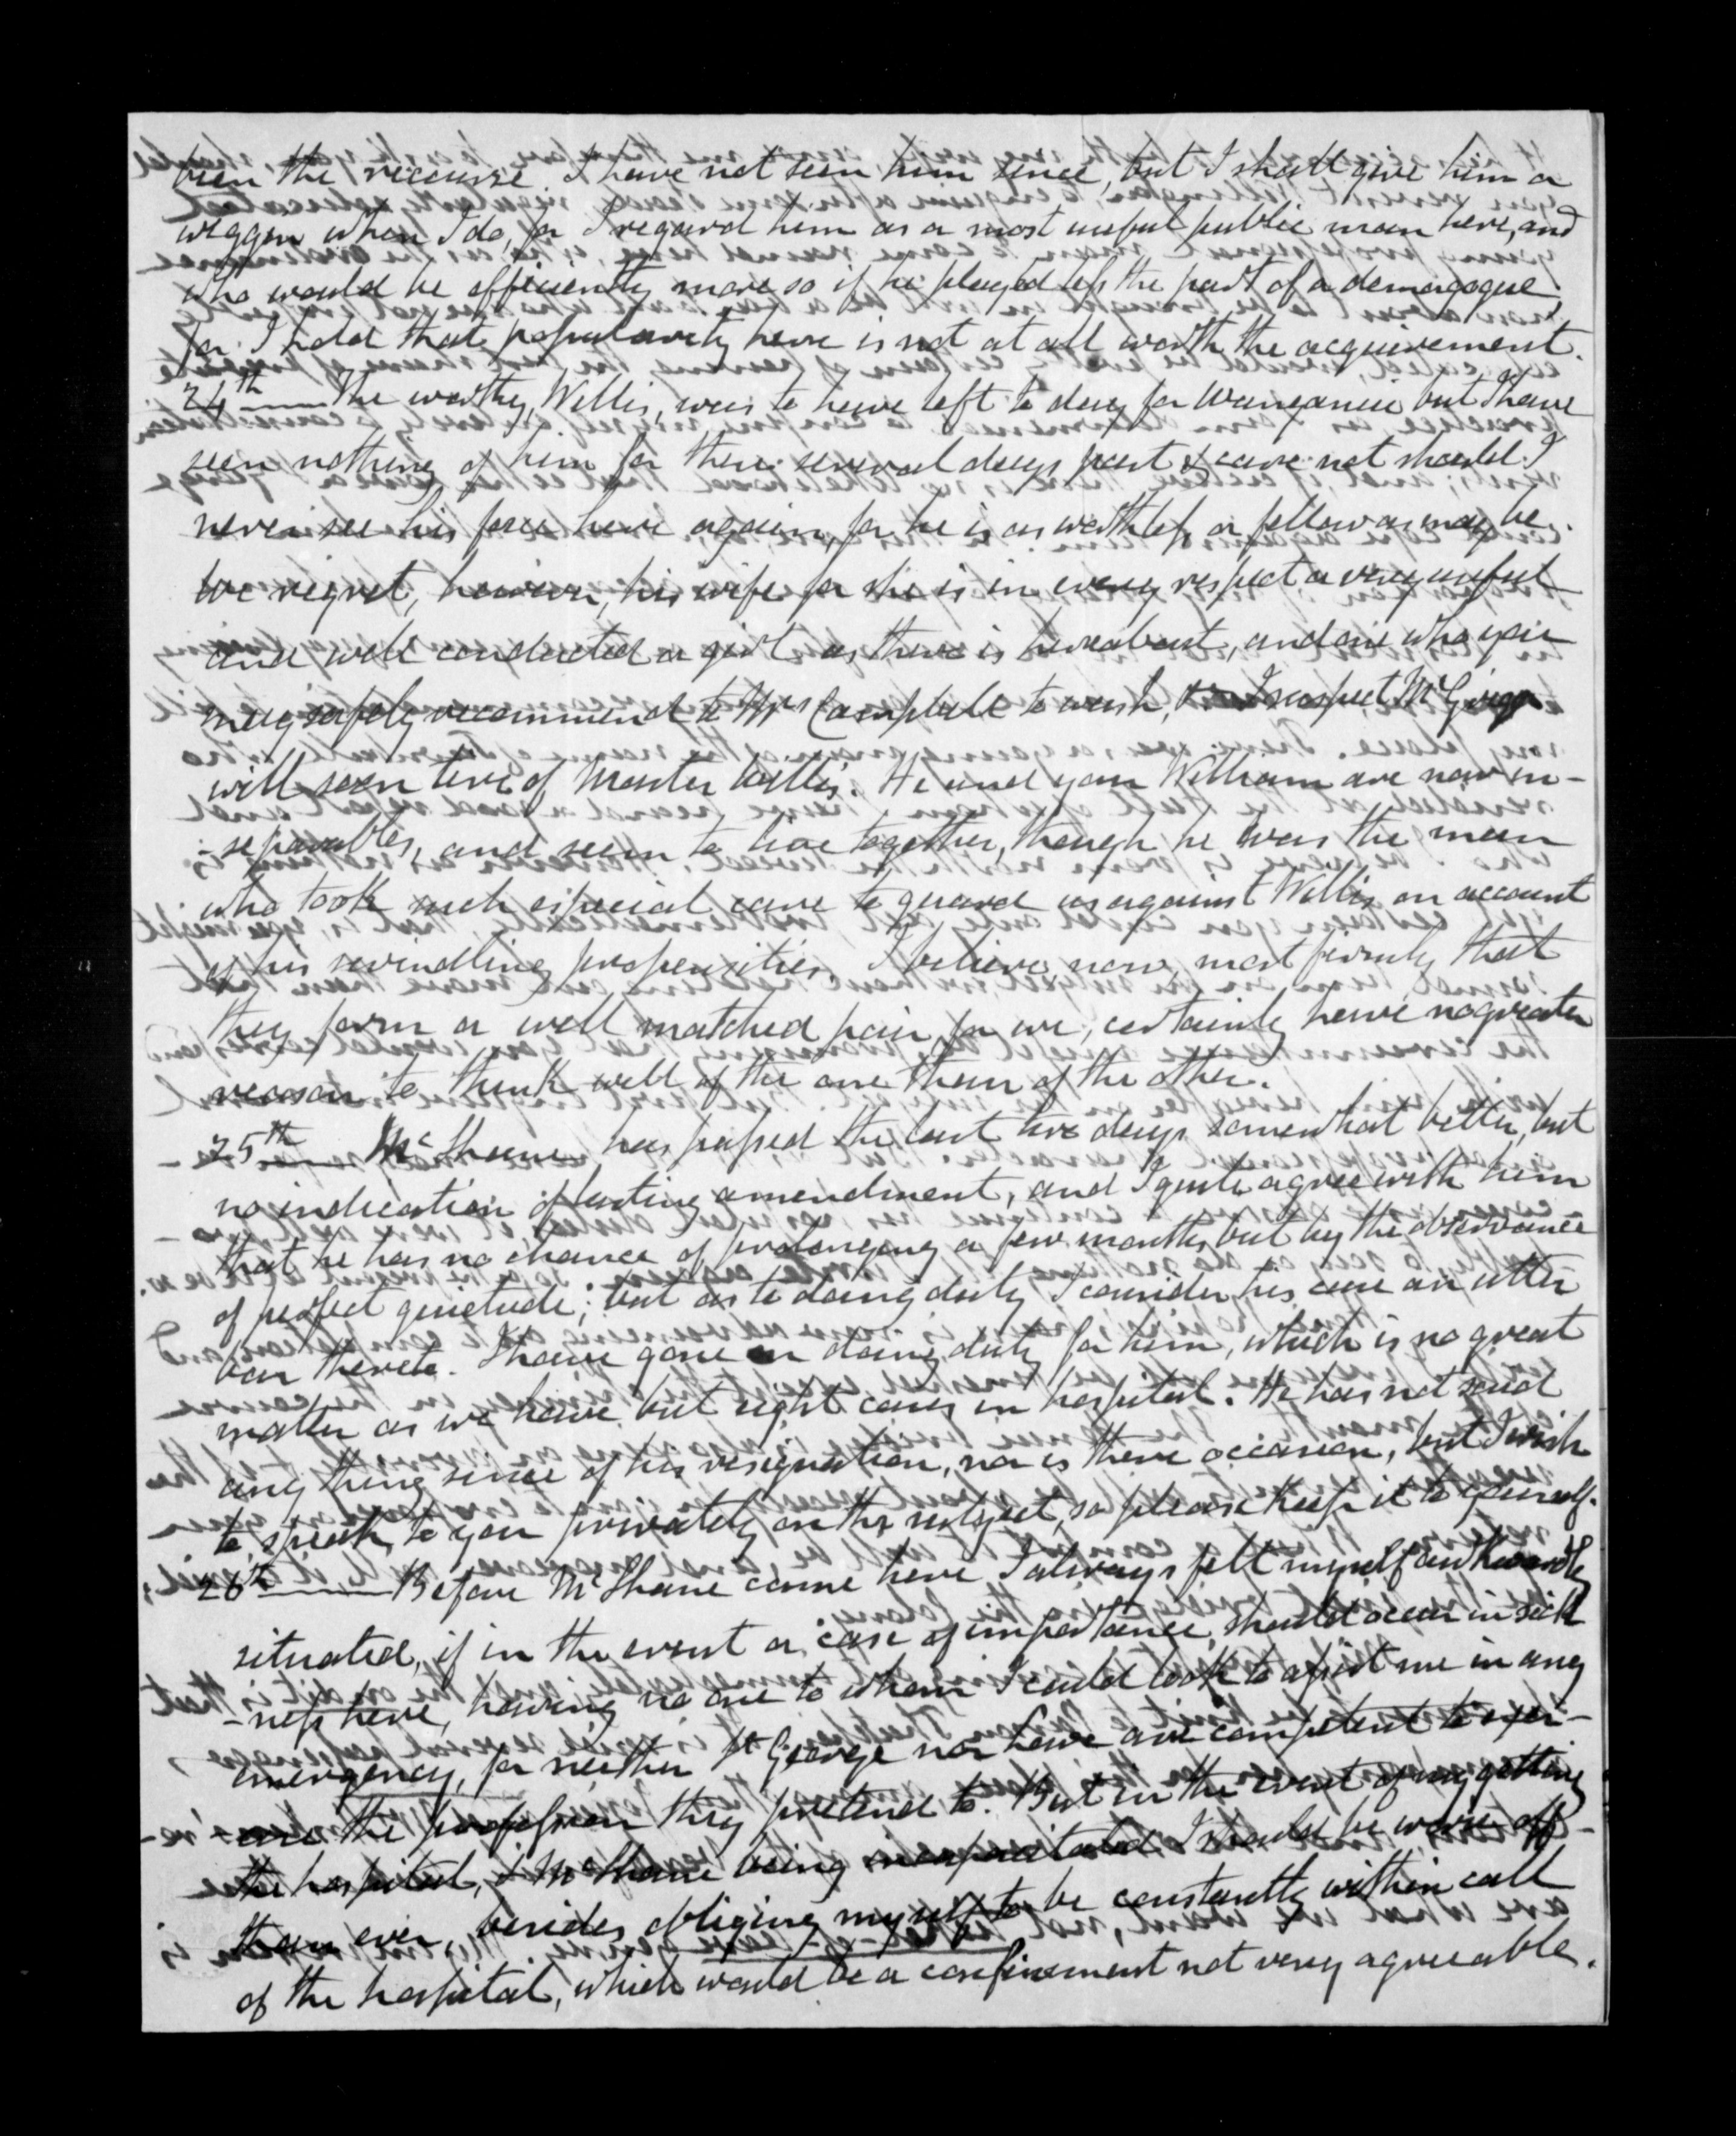 been the recourse. I have not seen him since, but I shall give him a
wiggin when I do, for I regard him as a most useful public man here, and
who would be efficiently more so if he played less the part of a demagogue,
for I hold that popularity here is not at all worth the acquirement.
24th —— The worthy, Willis, was to have left to day for Wanganui but I have
seen nothing of him for these several days past & care not should I
never see his face here again, for he is as worthless a fellow as may be.
We regret, however, his wife for she is in every respect a very useful
and well conducted a girl as there is hereabout, and one who you
may safely recommend to Mrs Campbell to wash, I suspect McGregor
will soon tire of Master Willis. He and your William are now in-
-separables, and seem to live together, though he was the man
who took such especial care to guard us against Willis on account
of his swindling propensities. I believe, now, most firmly that
they form a well matched pair, for we, certainly have no greater
reason to think well of the one than of the other.
25th —— McShane has passed the last two days somewhat better, but
no indication of lasting amendment, and I quite agree with him
that he has no chance of prolonging a few months but by the observance
of perfect quietude; but as to doing duty I consider his case an utter
bar thereto. I have gone on doing duty for him, which is no great
matter as we have but eight cases in hospital. He has not said
any thing since of his resignation, nor is there occasion, but I wish
to speak to you privately on the subject, so please keep it to yourself.
26th —— Before McShane came here I always felt myself awkwardly
situated, if in the event a case of importance, should occur in sick
-ness here, having no one to whom I could look to assist me in any
emergency, for neither St George nor are competent to exer-
cise the profession they pretend to. But in the event of my getting
the hospital, & McShane being incapacitated I should be worse off
than ever, besides obliging myself to be constantly within call
of the hospital, which would be a confinement not very agreeable.